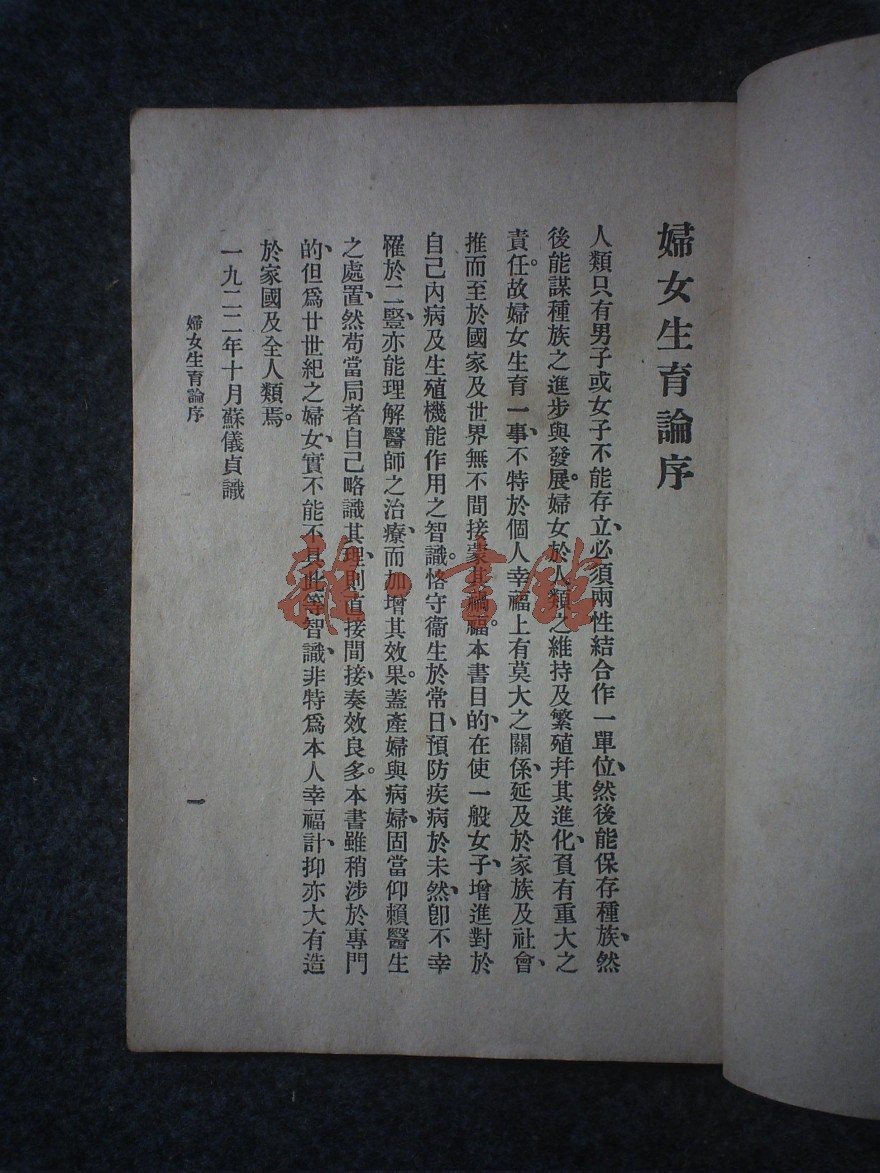 婦女生育論序
人類只有男子或女子不能存立、必須兩性結合作一單位、然後能保存種族、然
後能謀種族之進步與發展。婦女於人類之維持及繁殖幷其進化、負有重大之
責任。故婦女生育一事、不特於個人幸福上有莫大之關係、延及於家族及社會、
推而至於國家及世界無不間接蒙其禍福。本書目的、在使一般女子、增進對於
自己內病及生殖機能作用之智識。恪守衞生於常日、預防疾病於未然、卽不幸
罹於二豎、亦能理解醫師之治療、而加增其效果。蓋產婦與病婦、固當仰賴醫生
之處置、然苟當局者自己略識其理、則直接間接、奏效良多。本書雖稍涉於專門
的、但爲廿世紀之婦女、實不能不具此等智識、非特爲本人幸福計、抑亦大有造
於家國及全人類焉。
一九二二年十月蘇儀貞識
婦女生育論序
一
雜·書館